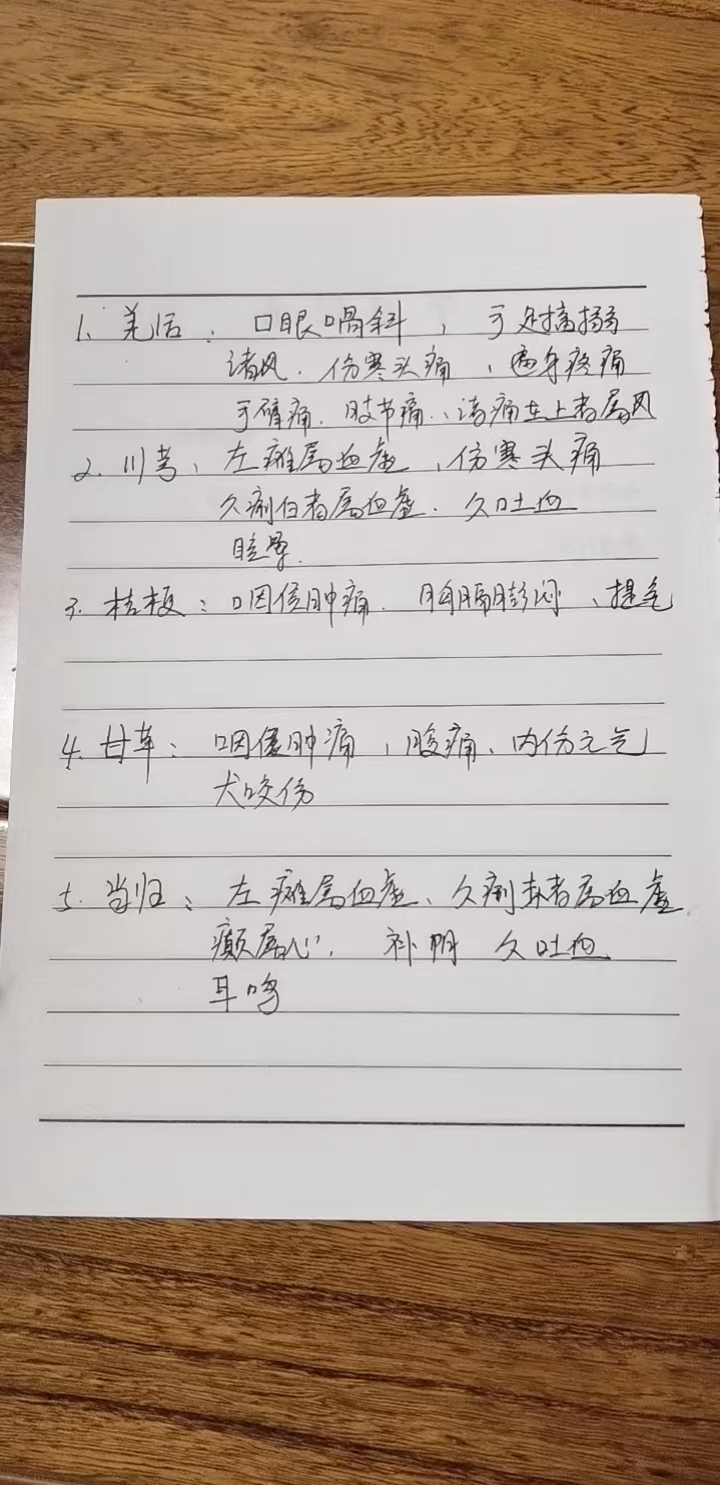 1、羌活：口眼喎斜，手足搐搦
诸风、伤寒头痛、遍身疼痛
手臂痛、肢节痛、诸痛在上者属风
2、川芎：左瘫属血虚、伤寒头痛
久痢白者属血虚、久吐血
眩晕
3、桔梗：咽喉肿痛、胸膈膨闷、提气
4、甘草：咽喉肿痛，腹痛、内伤元气
犬咬伤
5、当归：左瘫属血虚、久痢赤者属血虚
癫属心，补阴 久吐血
耳鸣